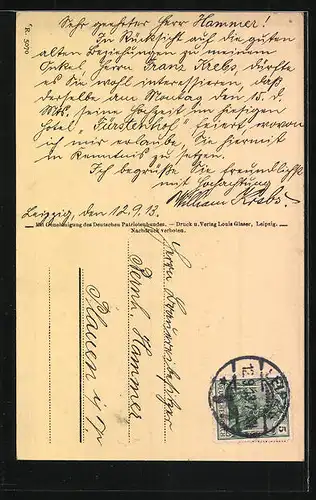 *R. 5070
Sehr geehrter Herr Hammer!
In Rücksicht auf die guten
alten Beziehungen zu meinem
Onkel, Herrn Franz Krebs, dürfte
es Sie wohl interessieren, daß
derselbe am Montag den 15. d.
Mts. seine Hochzeit im hiesigen
Hotel „Fürstenhof“ feiert, wovon
ich mir erlaube, Sie hiermit
in Kenntnis zu setzen.
Ich begrüße Sie freundlichst
mit Hochachtung
William Krebs
Leipzig, den 12.9.13.
Mit Genehmigung des Deutschen Patriotenbundes. — Druck u. Verlag Louis Glaser, Leipzig.
Nachdruck verboten.
Herrn Brauereibesitzer
Bernh. Hammer
Plauen i/V
LEIPZIG
12.9.13
5